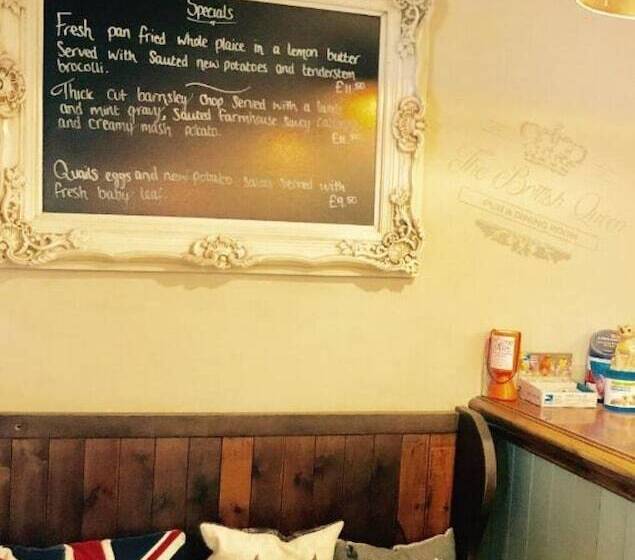 Specials
Fresh pan fried whole plaice in a lemon butter
Served with Sauted new potatoes and tenderstem
brocolli.
£11.50
Thick cut barnsley chop Served with a lamb
and mint gravy, Sauted Farmhouse Savoy
and creamy mash potato.
Quails eggs and new potato salad served with
fresh baby leaf.
£9.50
The British Queen
PUB & DINING ROOM